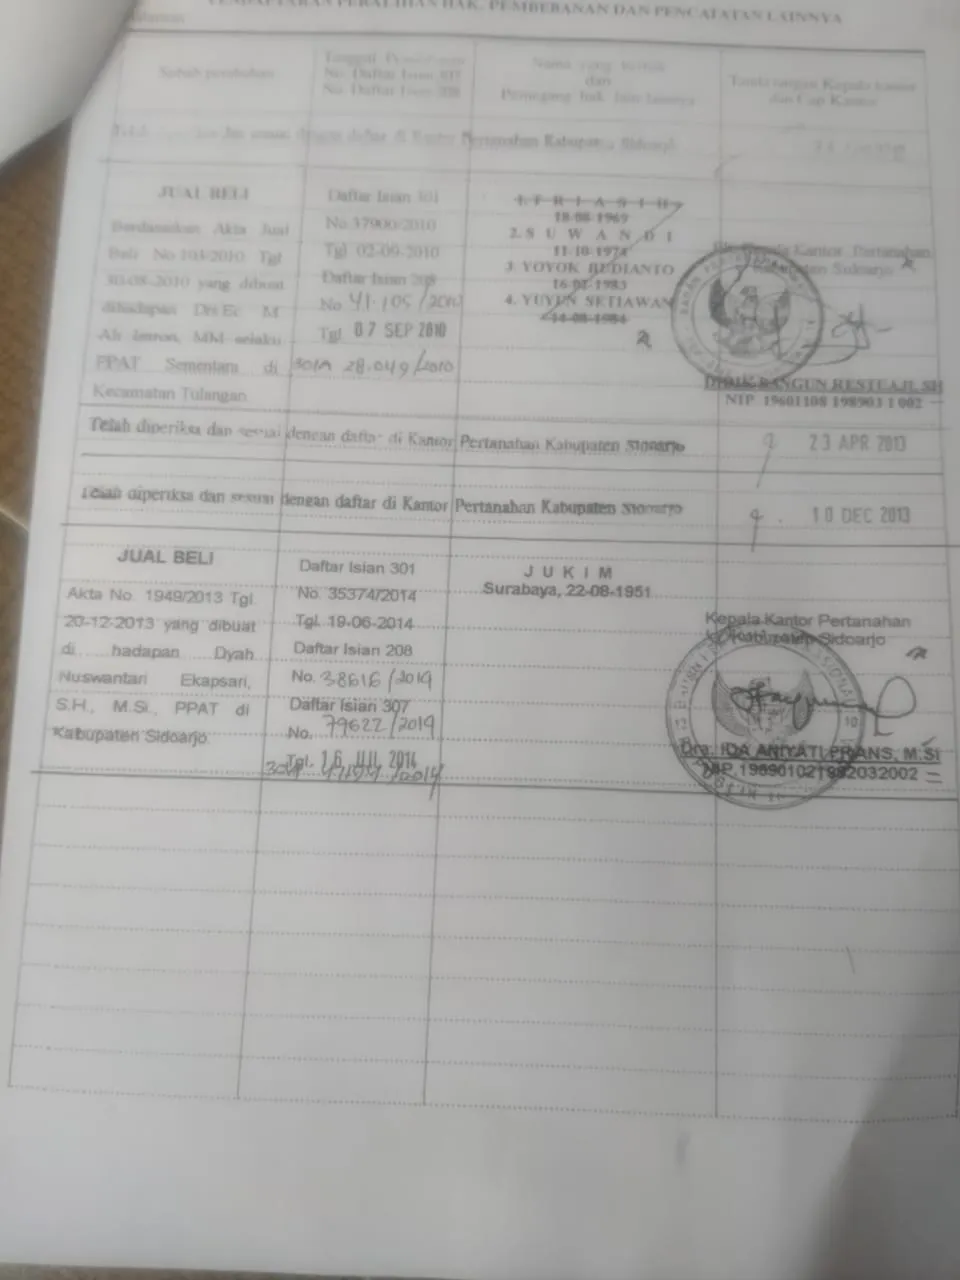 PENDAFTARAN PERALIHAN HAK, PEMBEBANAN DAN PENCATATAN LAINNYA
Sebab perubahan
No. Daftar Isian 307
No. Daftar Isian 208
Nama yang
dan
Pemegang hak lain lainnya
Tanda tangan Kepala kantor
dan Cap Kantor
dengan daftar di Kantor Pertanahan Kabupaten Sidoarjo
JUAL BELI
Berdasarkan Akta Jual
Beli No
Tgl
30-08-2010 yang dibuat
dihadapan Drs.Ec M
Ali Imron, MM selaku
PPAT Sementara di
Kecamatan Tulangan
Daftar Isian 301
No 37900/2010
Tgl 02-09-2010
Daftar Isian 208
No 41.105/2010
Tgl. 07 SEP 2010
301A 28.049/2010
18-08-1969
2. S U W A N D I
11-10-1974
3. YOYOK BUDIANTO
16-02-1983
4. YUYUN SETIAWAN
14-08-1984
Kepala Kantor Pertanahan
Kabupaten Sidoarjo
DIDIK BANGUN RESTUAJI, SH
NIP 19601108 198903 1 002
Telah diperiksa dan sesuai dengan daftar di Kantor Pertanahan Kabupaten Sidoarjo
23 APR 2013
Telah diperiksa dan sesuai dengan daftar di Kantor Pertanahan Kabupaten Sidoarjo
10 DEC 2013
JUAL BELI
Akta No. 1949/2013 Tgl.
20-12-2013 yang dibuat
di hadapan Dyah
Nuswantari Ekapsari,
S.H., M.Si., PPAT di
Kabupaten Sidoarjo.
Daftar Isian 301
No. 35374/2014
Tgl. 19-06-2014
Daftar Isian 208
No. 38616/2014
Daftar Isian 307
No. 79622/2014
Tgl. 16 JUL 2014
J U K I M
Surabaya, 22-08-1951
Kepala Kantor Pertanahan
Kabupaten Sidoarjo
Dra. IDA ANIYATI PRANS, M.SI
NIP.196901021992032002